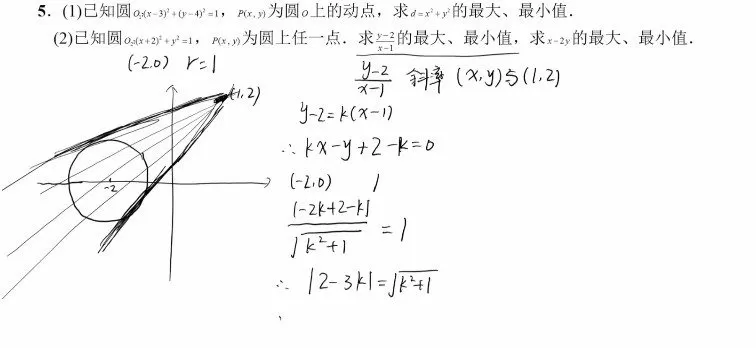 5. (1)已知圆O₁:(x-3)²+(y-4)²=1，P(x,y)为圆O上的动点，求d=x²+y²的最大、最小值.
(2)已知圆O₂:(x+2)²+y²=1，P(x,y)为圆上任一点. 求(y-2)/(x-1)的最大、最小值，求x-2y的最大、最小值.
(-2.0) r=1
(y-2)/(x-1) 斜率 (x,y)与(1,2)
(1,2)
y-2=k(x-1)
∴ kx-y+2-k=0
(-2.0) 1
-2
|-2k+2-k|/√(k²+1) = 1
∴ |2-3k|=√(k²+1)